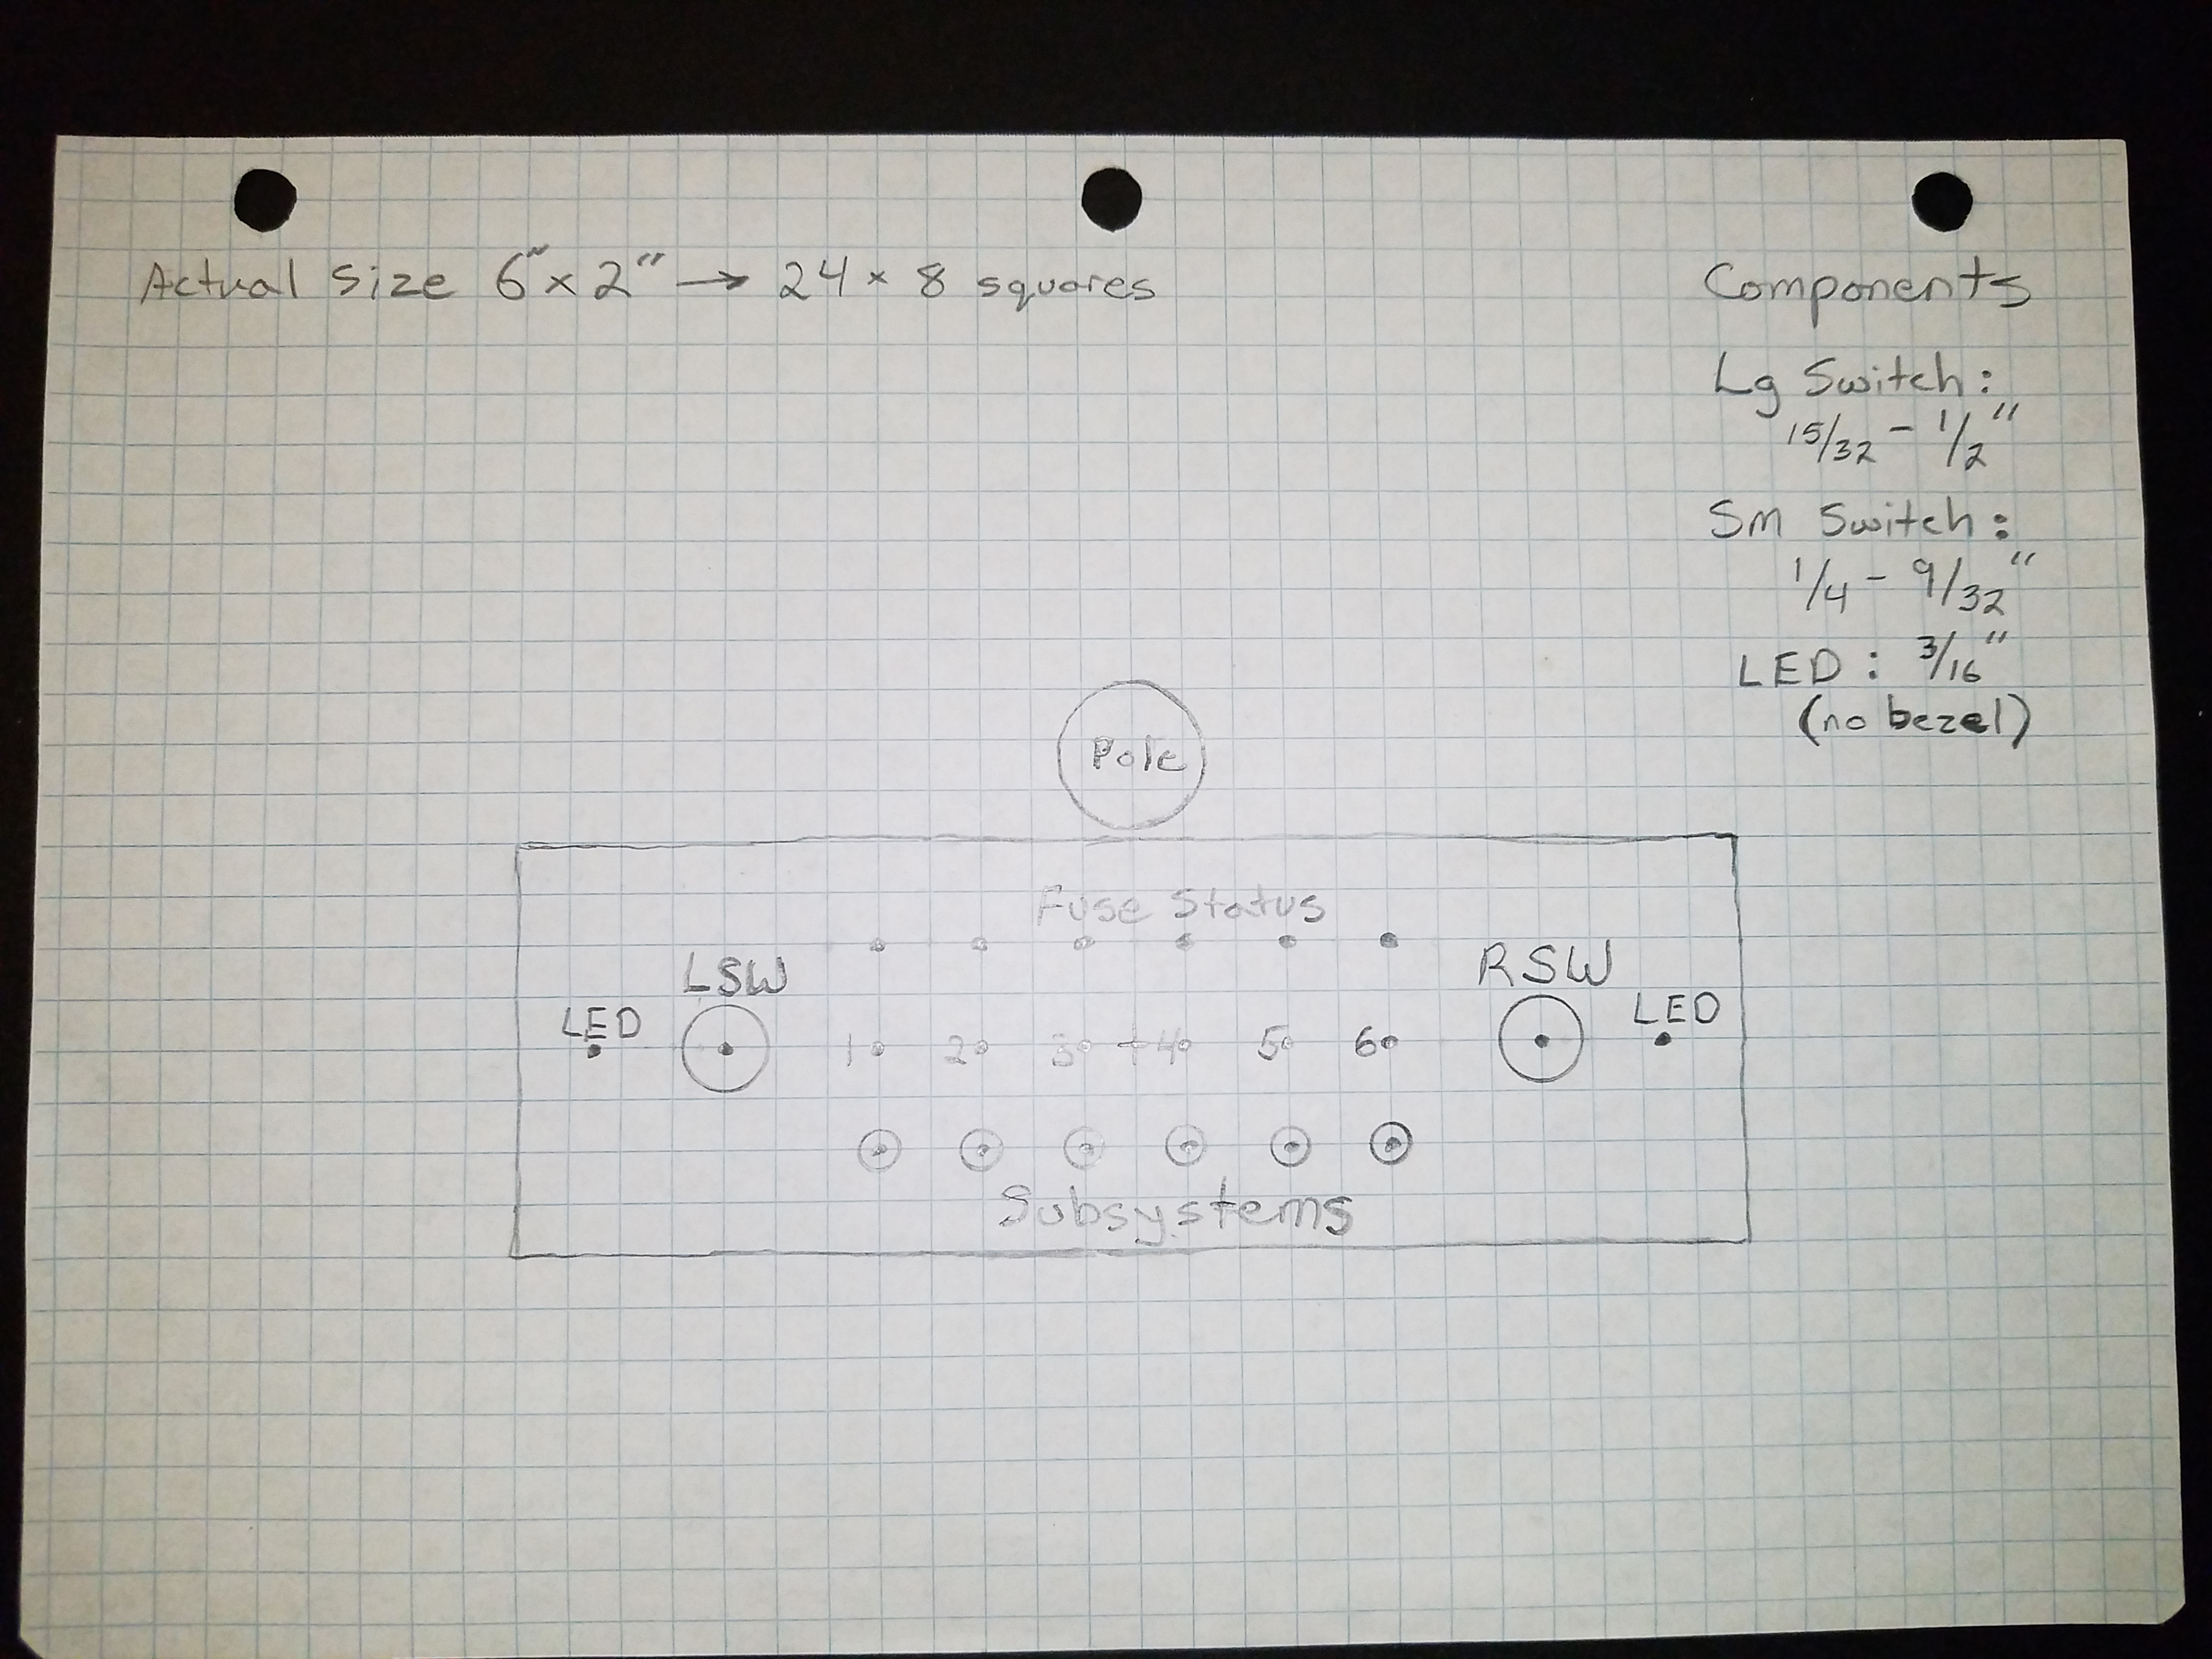 Actual Size 6" x 2" → 24 x 8 squares
Components
Lg Switch:
15/32 - 1/2"
Sm Switch:
1/4 - 9/32"
LED: 3/16"
(no bezel)
Pole
Fuse Status
LSW
RSW
LED
LED
1 2 3 4 5 6
Subsystems